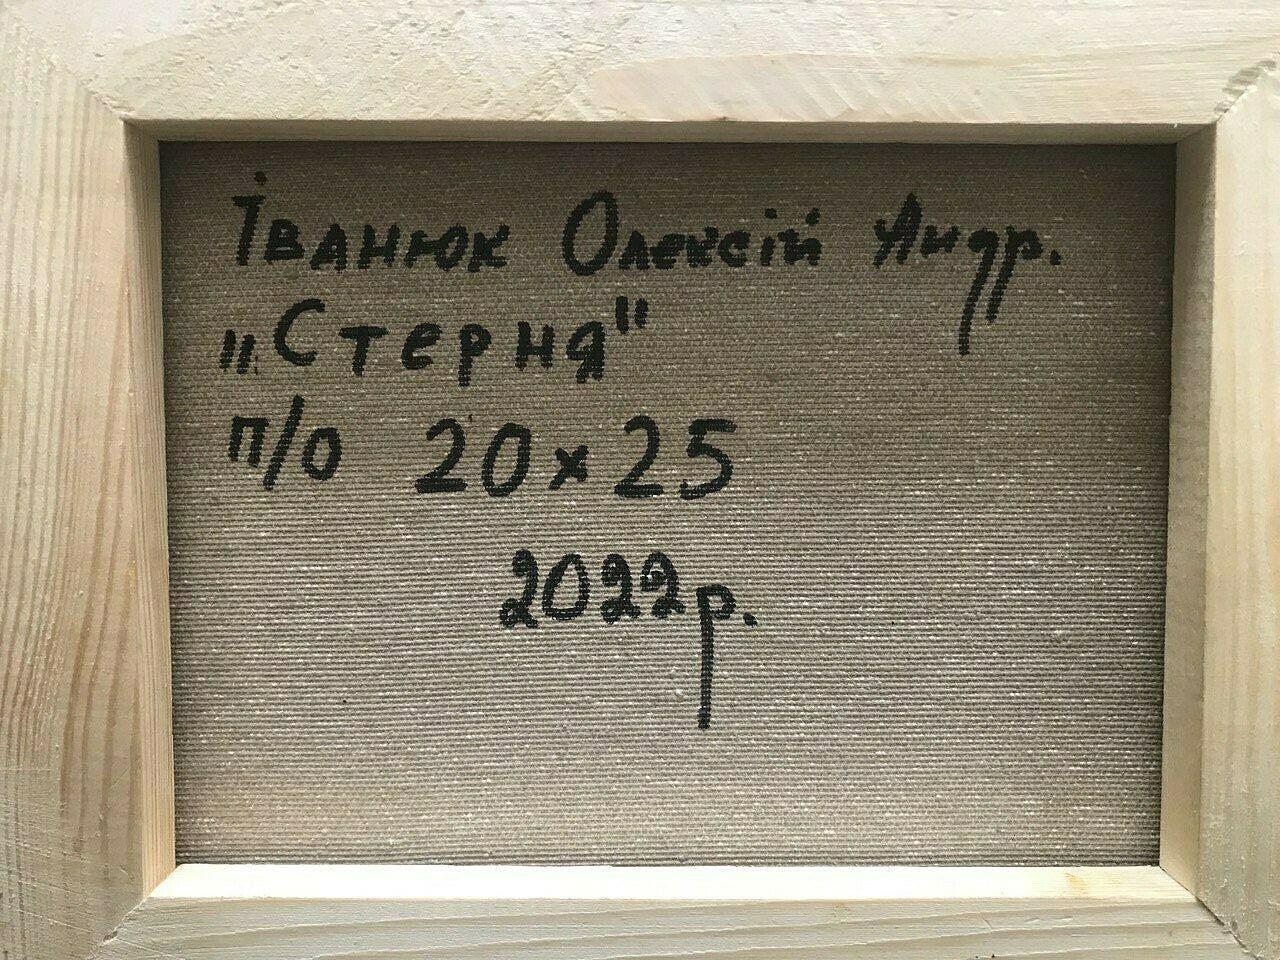 Іванюк Олексій Андр.
„Стерня"
п/о 20×25
2022р.